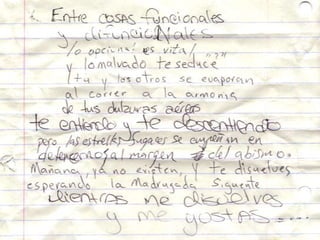 Entre cosas funcionales
y disfuncionales
lo opcional es vital
y lo malvado te seduce
/ tu y los otros se evaporan
al correr a la armonia
de tus dulzuras
te entiendo y te desentiendo
pero las estrellas fugaces se en
al margen del abismo.
Mañana, ya no existen, y te disuelves
esperando la Madrugada siguiente
Mientras me disuelves
y me gustas....